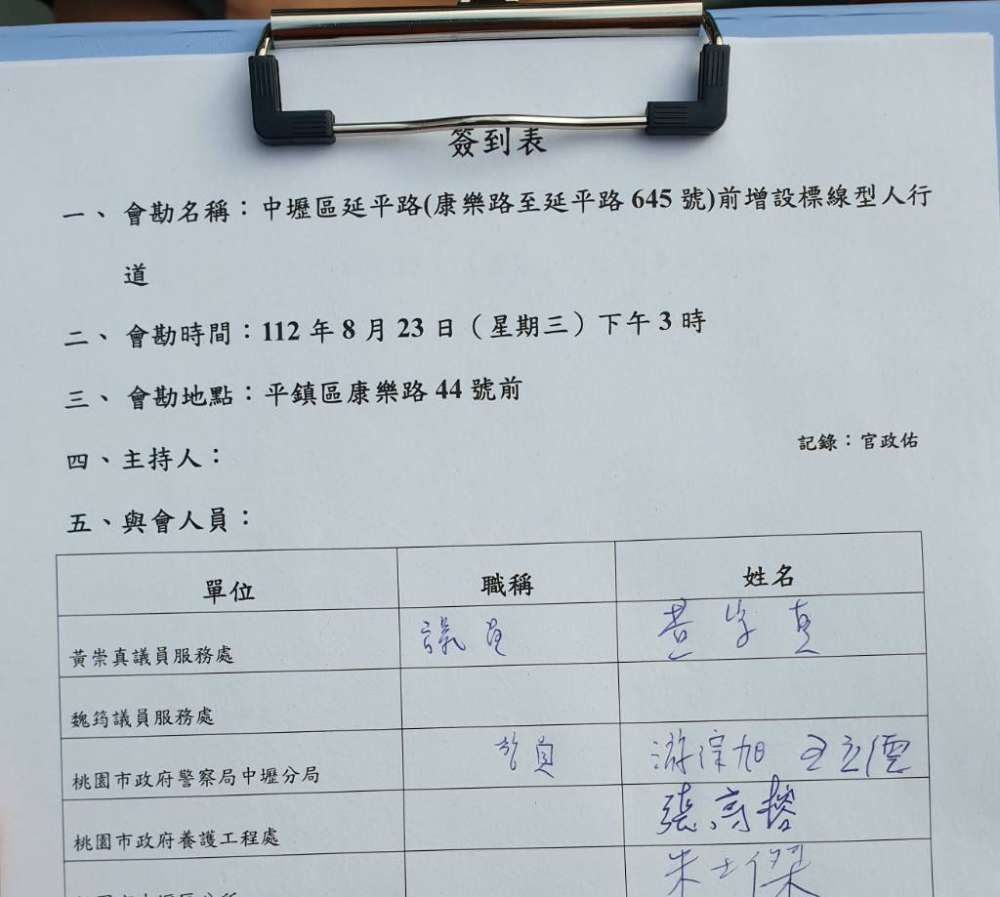 簽到表
一、 會勘名稱：中壢區延平路(康樂路至延平路 645 號)前增設標線型人行
道
二、 會勘時間：112 年 8 月 23 日（星期三）下午 3 時
三、 會勘地點：平鎮區康樂路 44 號前
四、主持人：
記錄：官政佑
五、與會人員：
單位 職稱 姓名
黃崇真議員服務處 議員 黃崇真
魏筠議員服務處
桃園市政府警察局中壢分局 警員 游淙旭
桃園市政府養護工程處
朱士傑